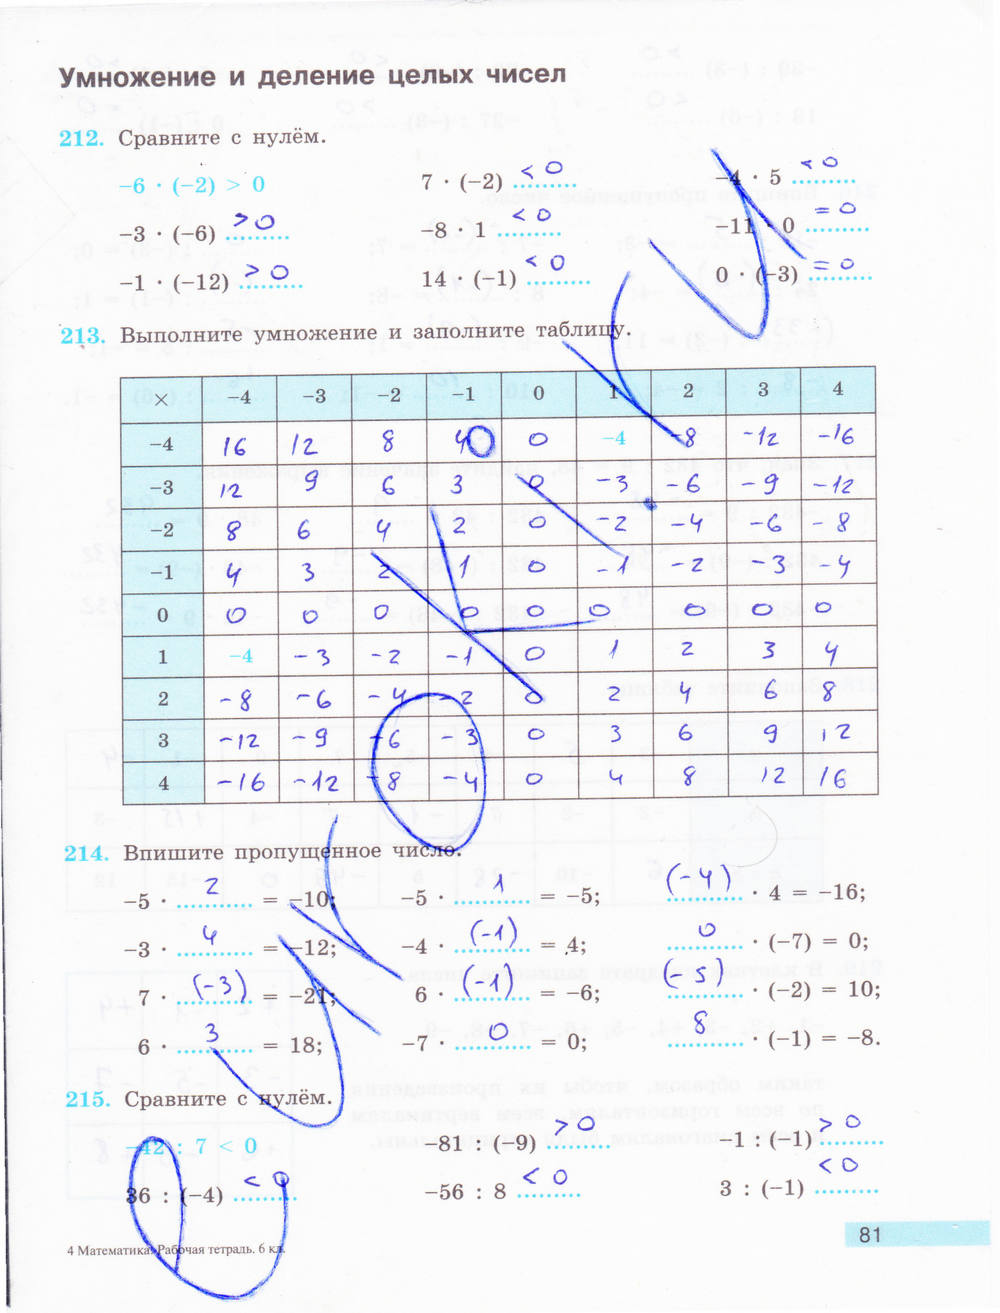 Умножение и деление целых чисел
212. Сравните с нулём.
−6 · (−2) > 0 7 · (−2) < 0 −4 · 5 < 0
−3 · (−6) > 0 −8 · 1 < 0 −11 · 0 = 0
−1 · (−12) > 0 14 · (−1) < 0 0 · (−3) = 0
213. Выполните умножение и заполните таблицу.
× −4 −3 −2 −1 0 1 2 3 4
−4 16 12 8 4 0 −4 −8 −12 −16
−3 12 9 6 3 0 −3 −6 −9 −12
−2 8 6 4 2 0 −2 −4 −6 −8
−1 4 3 2 1 0 −1 −2 −3 −4
0 0 0 0 0 0 0 0 0 0
1 −4 −3 −2 −1 0 1 2 3 4
2 −8 −6 −4 −2 0 2 4 6 8
3 −12 −9 −6 −3 0 3 6 9 12
4 −16 −12 −8 −4 0 4 8 12 16
214. Впишите пропущенное число.
−5 · 2 = −10; −5 · 1 = −5; (−4) · 4 = −16;
−3 · 4 = −12; −4 · (−1) = 4; 0 · (−7) = 0;
7 · (−3) = −21; 6 · (−1) = −6; (−5) · (−2) = 10;
6 · 3 = 18; −7 · 0 = 0; 8 · (−1) = −8.
215. Сравните с нулём.
−42 : 7 < 0 −81 : (−9) > 0 −1 : (−1) > 0
36 : (−4) < 0 −56 : 8 < 0 3 : (−1) < 0
4 Математика. Рабочая тетрадь. 6 кл.
81